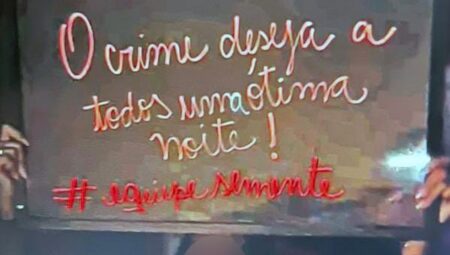 O crime deseja a
todos uma ótima
noite!
# equipe semente